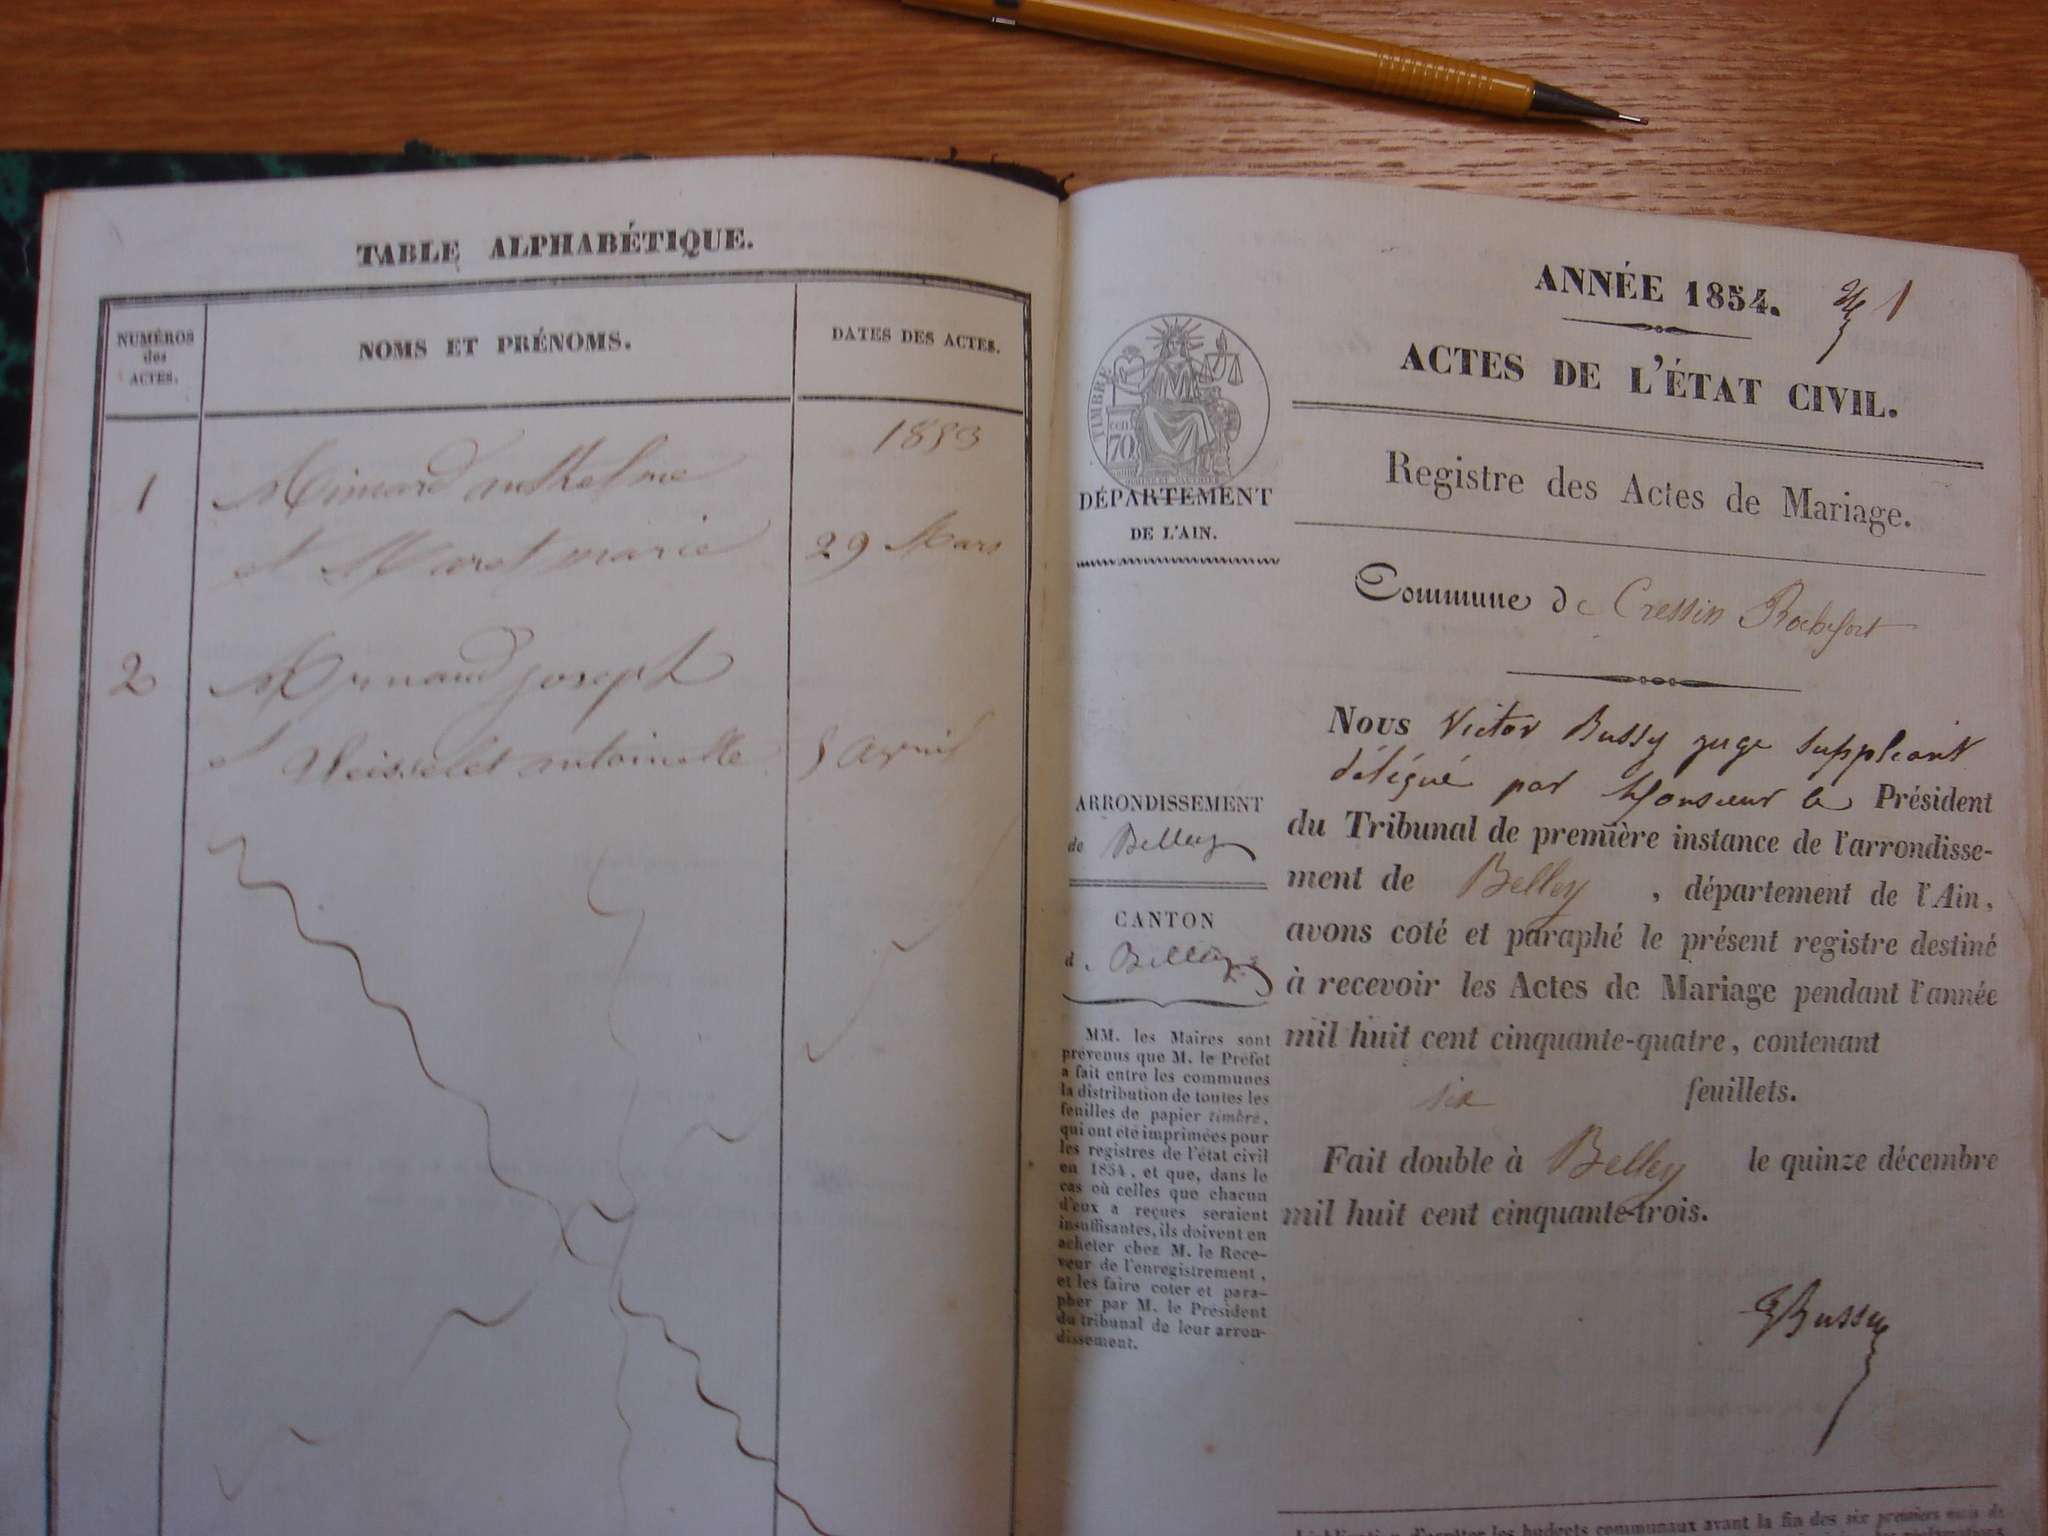 TABLE ALPHABÉTIQUE.
NUMÉROS
des
ACTES.
NOMS ET PRÉNOMS.
DATES DES ACTES.
1853
1 Mimard anthelme
et Maret marie 29 Mars
2 joseph
et antoinette 5 avril
ANNÉE 1854.
1
ACTES DE L'ÉTAT CIVIL.
TIMBRE
cen
70
DÉPARTEMENT
DE L'AIN.
Registre des Actes de Mariage.
Commune de Cressin Rochefort
Nous Victor Bussy juge suppleant
délégué par Monsieur le Président
du Tribunal de première instance de l'arrondisse-
ment de Belley, département de l'Ain,
avons coté et paraphé le présent registre destiné
à recevoir les Actes de Mariage pendant l'année
mil huit cent cinquante-quatre, contenant
six feuillets.
Fait double à Belley le quinze décembre
mil huit cent cinquante-trois.
Bussy
ARRONDISSEMENT
de Belley
CANTON
de Belley
MM. les Maires sont
prévenus que M. le Préfet
a fait entre les communes
la distribution de toutes les
feuilles de papier timbré,
qui ont été imprimées pour
les registres de l'état civil
en 1854, et que, dans le
cas où celles que chacun
d'eux a reçues seraient
insuffisantes, ils doivent en
acheter chez M. le Rece-
veur de l'enregistrement,
et les faire coter et para-
pher par M. le Président
du tribunal de leur arron-
dissement.
les budgets communaux avant la fin des six premiers mois de